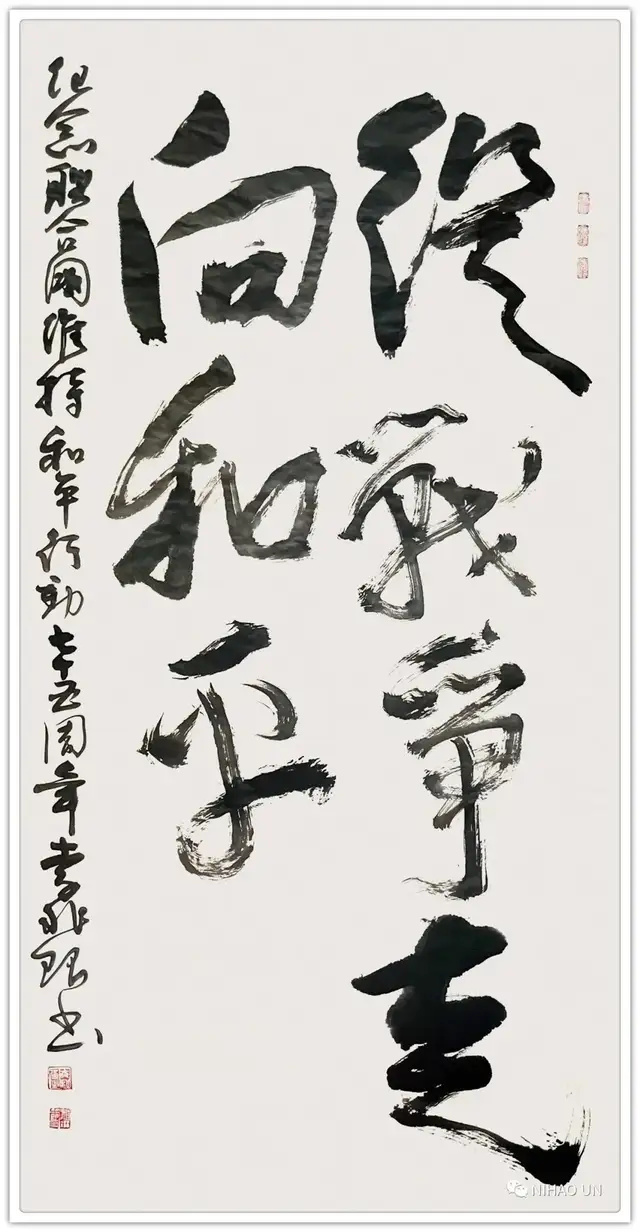 從戰爭走
向和平
紀念聯合國維持和平行動七十五周年李書
NIHAO UN